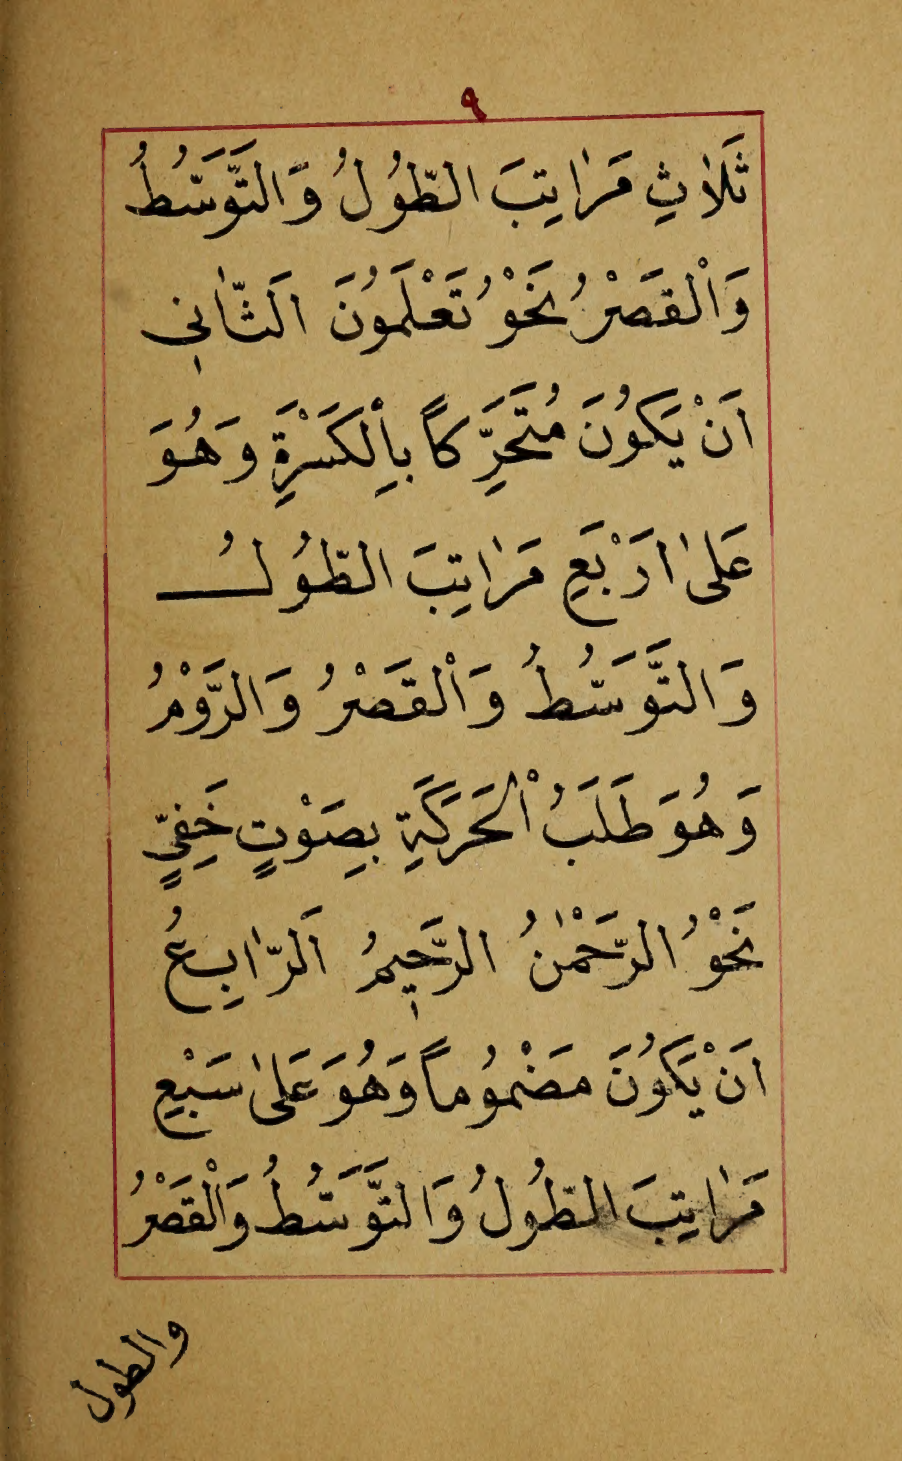 ٩
ثَلٰاثِ مَرٰاتِبَ الطّوُلُ وَالتَّوَسّطُ
وَاْلقَصْرُ نَحْوُ تَعْلَمَوُنَ اَلثّٰانِى
اَنْ يَكَوُنَ مُتَحَرِّكاً بِاْلكَسْرَةِ وَهُوَ
عَلىٰ ارَبْعَ مَرٰاتِبَ الطّوُلُ
وَالتَّوَسّطُ وَاْلقَصْرُ وَالرَّوْمُ
وَهُوَ طَلَبُ اْلحَرَكَةِ بِصَوْتٍ خَفِىٍّ
نَحْوُ الرَّحْمٰنُ الرَّحِيمُ اَلرّٰابِعُ
اَنْ يَكَوُنَ مَضْموُماً وَهُوَ عَلىٰ سَبْعِ
مَرٰاتِبَ الطّوُلُ وَالتَّوَسّطُ وَالْقَصْرُ
والطول